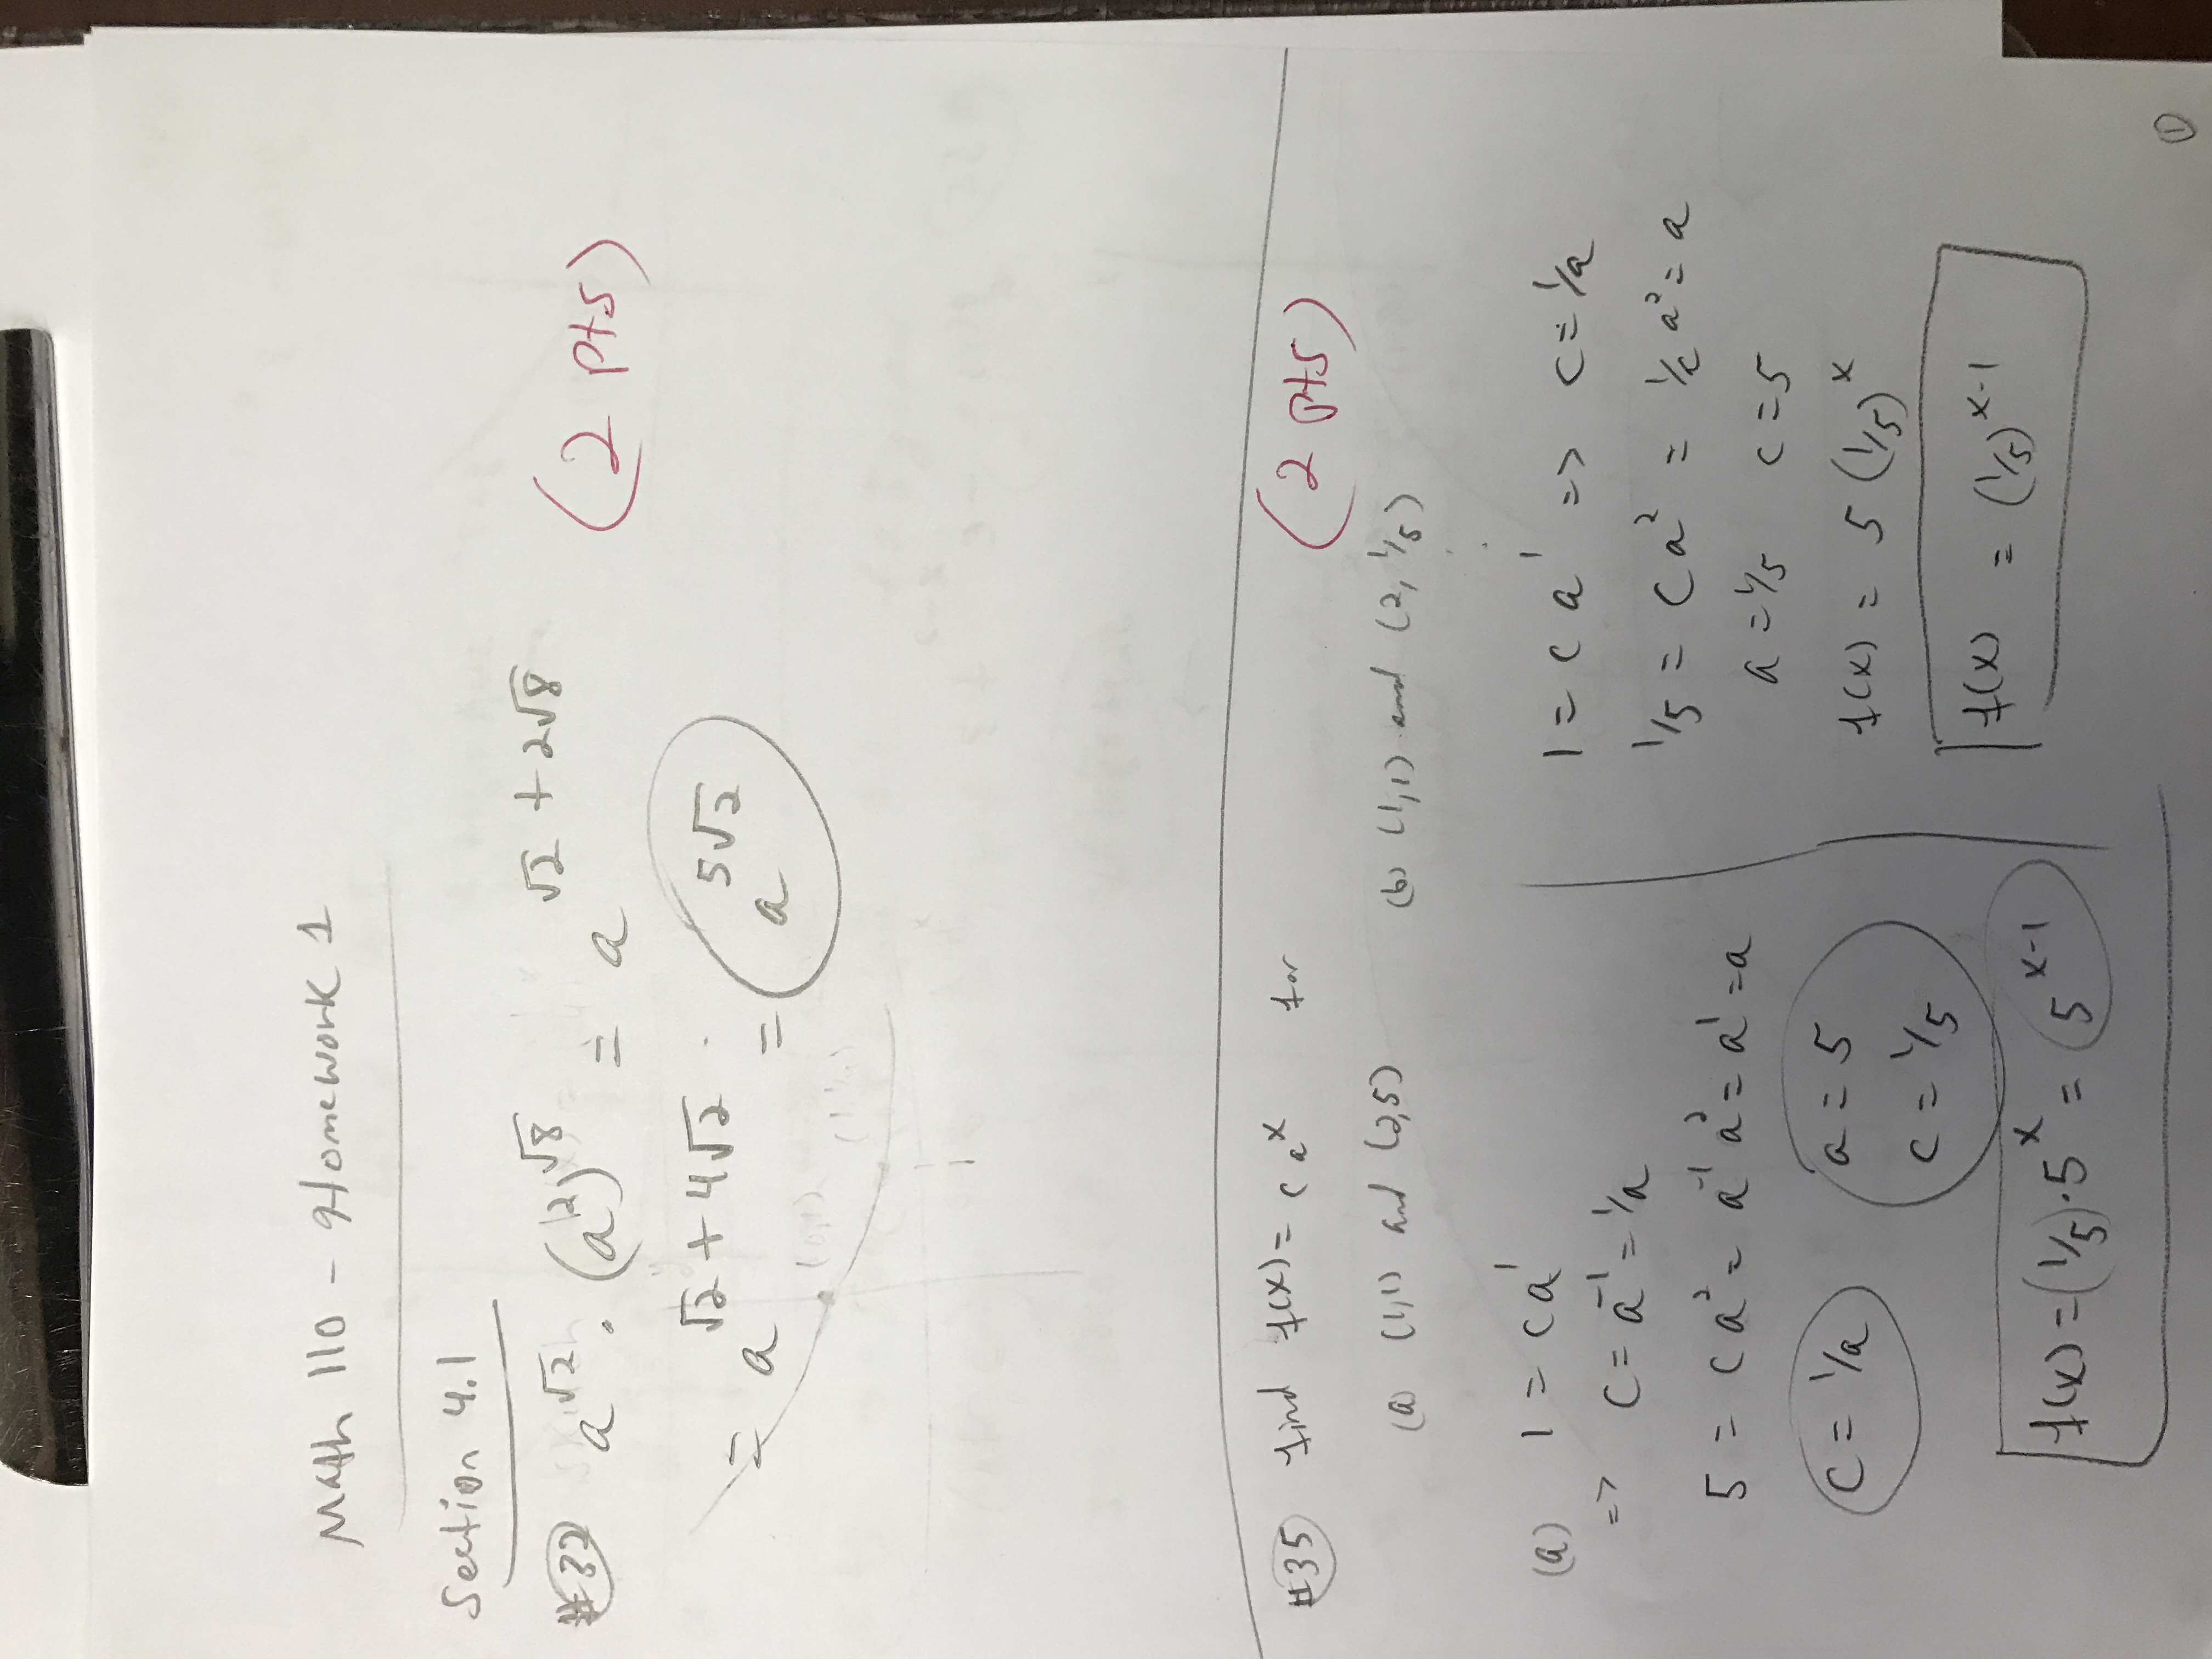 Math 110 - Homework 1
Section 4.1
#32 a^√2 · (a^2)^√8 = a^(√2 + 2√8) (2 pts)
= a^(√2 + 4√2) = a^(5√2)
(0,1)
1
#35 find f(x) = c a^x for (2 pts)
(a) (1,1) and (2,5) (b) (1,1) and (2, 1/5)
(a) 1 = c a^1
=> c = a^-1 = 1/a
5 = c a^2 = a^-1 a^2 = a^1 = a
c = 1/a a = 5
c = 1/5
f(x) = (1/5) · 5^x = 5^(x-1)
1 = c a^1 => c = 1/a
1/5 = c a^2 = 1/a a^2 = a
a = 1/5 c = 5
f(x) = 5 (1/5)^x
f(x) = (1/5)^(x-1)
1